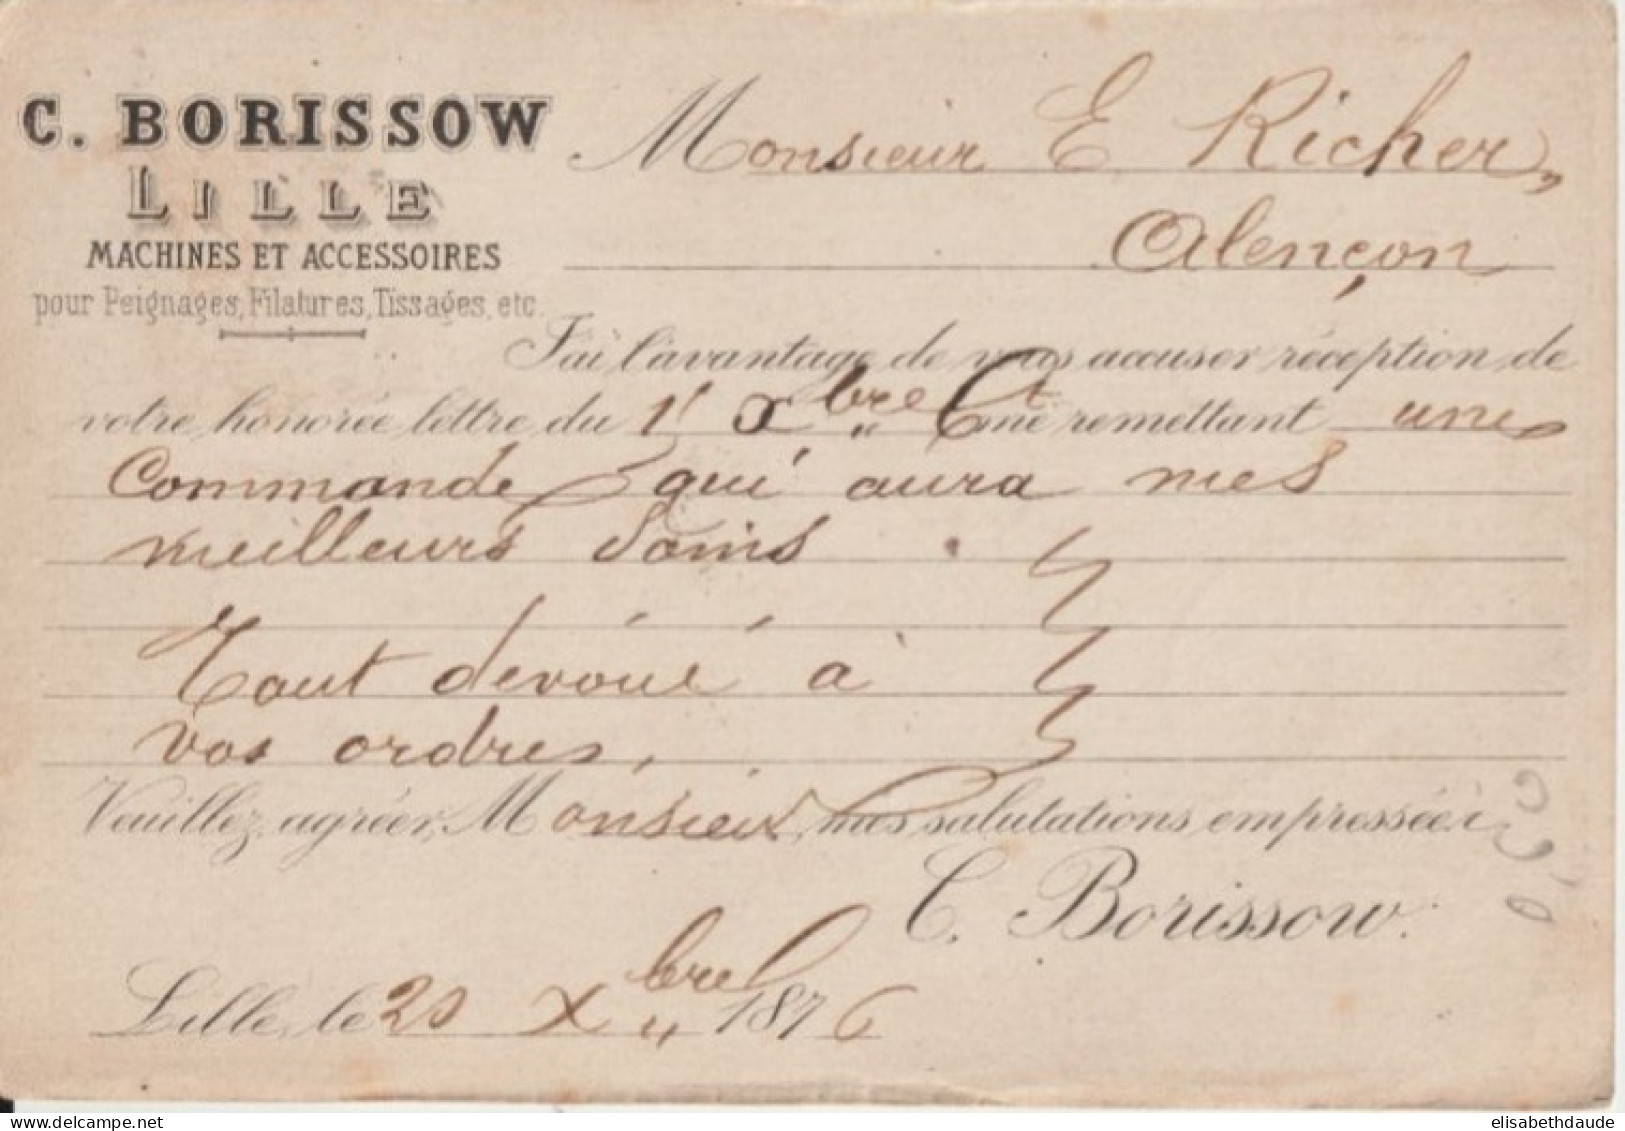 C. BORISSOW
LILLE
MACHINES ET ACCESSOIRES
pour Peignages, Filatures, Tissages, etc.
Monsieur E Richer,
Alençon
J'ai l'avantage de vous accuser réception de
votre honorée lettre du Xbre Ct me remettant une
Commande qui aura mes
meilleurs soins.
Tout dévoué à
vos ordres,
Veuillez agréer, Monsieur, mes salutations empressées
C. Borissow.
Lille, le 20 Xbre 1876
elisabethdaude
www.delcampe.net